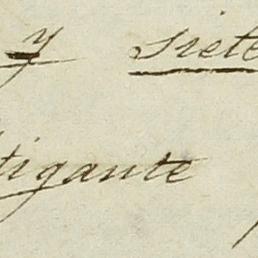 y siete
tigante